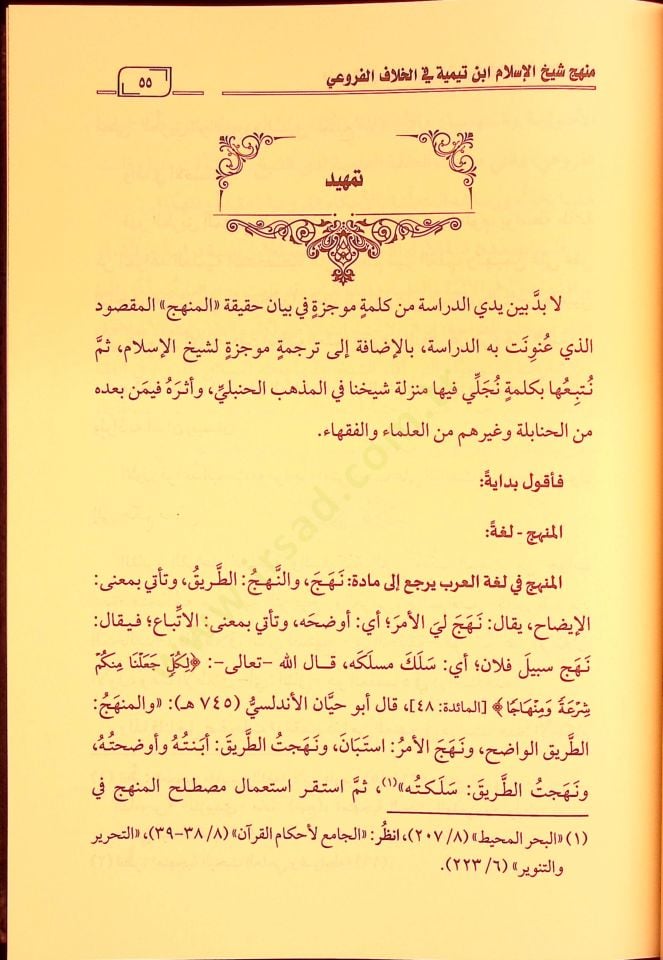 منهج شيخ الإسلام ابن تيمية في الخلاف الفروعي
٥٥
تمهيد
لا بدَّ بين يدي الدراسة من كلمةٍ موجزةٍ في بيان حقيقة «المنهج» المقصود
الذي عُنوِنَت به الدراسة، بالإضافة إلى ترجمةٍ موجزةٍ لشيخ الإسلام، ثمَّ
نُتبِعُها بكلمةٍ نُجَلِّي فيها منزلة شيخنا في المذهب الحنبليِّ، وأثرَهُ فيمَن بعده
من الحنابلة وغيرهم من العلماء والفقهاء.
فأقول بدايةً:
المنهج - لغةً:
المنهج في لغة العرب يرجع إلى مادة: نَهَجَ، والنَّهجُ: الطَّريقُ، وتأتي بمعنى:
الإيضاح، يقال: نَهَجَ ليَ الأمرَ؛ أي: أوضحَه، وتأتي بمعنى: الاتِّباع؛ فيقال:
نَهَج سبيلَ فلان؛ أي: سَلَكَ مسلكَه، قال الله -تعالى-: ﴿لِكُلٍّ جَعَلْنَا مِنكُمْ
شِرْعَةً وَمِنْهَاجًا﴾ [المائدة: ٤٨]، قال أبو حيَّان الأندلسيُّ (٧٤٥ هـ): «والمنهَجُ:
الطَّريق الواضح، ونَهَجَ الأمرُ: استَبَانَ، ونَهَجتُ الطَّريقَ: أبَنتُهُ وأوضحتُهُ،
ونَهَجتُ الطَّريقَ: سَلَكتُه»(١)، ثمَّ استقر استعمال مصطلح المنهج في
(١) «البحر المحيط» (٨/ ٢٠٧)، انظُر: «الجامع لأحكام القرآن» (٨/ ٣٨-٣٩)، «التحرير
والتنوير» (٦/ ٢٢٣).